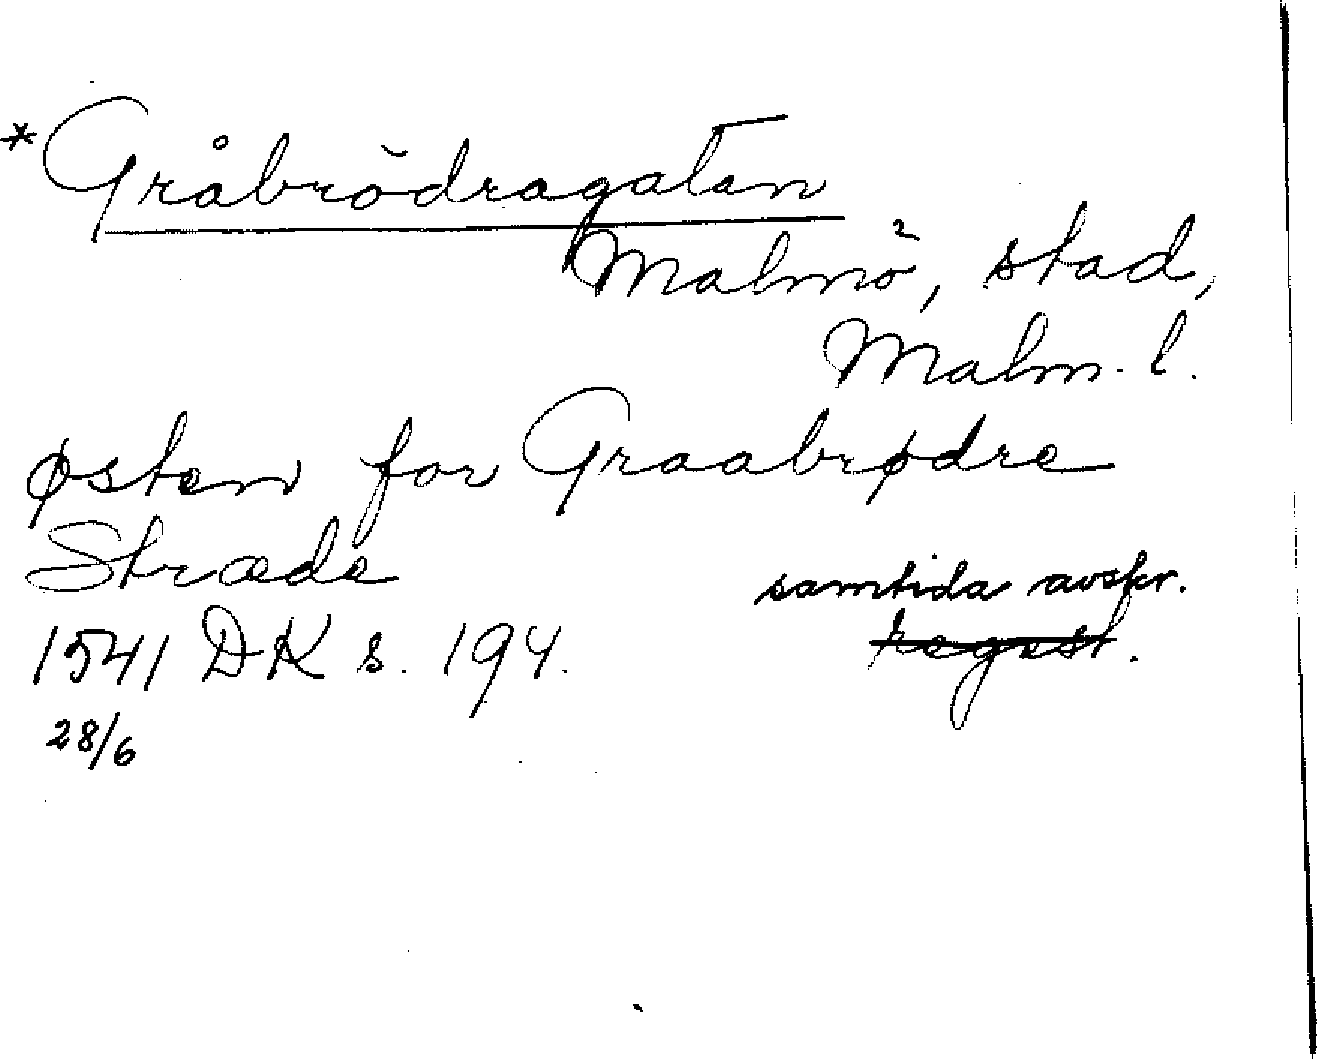 *Gråbrödragatan
Malmö, stad,
Malm. l.
østen for Graabrødre
Stræde
samtida avskr.
1541 DK s. 194. regest.
28/6